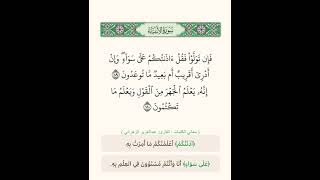 سورة الأنبياء
فَإِن تَوَلَّوْا۟ فَقُلْ ءَاذَنتُكُمْ عَلَىٰ سَوَآءٍۢ ۖ وَإِنْ
أَدْرِىٓ أَقَرِيبٌ أَم بَعِيدٌۭ مَّا تُوعَدُونَ ١٠٩
إِنَّهُۥ يَعْلَمُ ٱلْجَهْرَ مِنَ ٱلْقَوْلِ وَيَعْلَمُ مَا
تَكْتُمُونَ ١١٠
( معاني الكلمات - القارئ: عبدالعزيز الزهراني )
﴿آذَنتُكُمْ﴾ أَعْلَمْتُكُمْ مَا أُمِرْتُ بِهِ.
﴿عَلَى سَوَاءٍ﴾ أَنَا وَأَنْتُمْ مُسْتَوُونَ فِي العِلْمِ بِهِ.